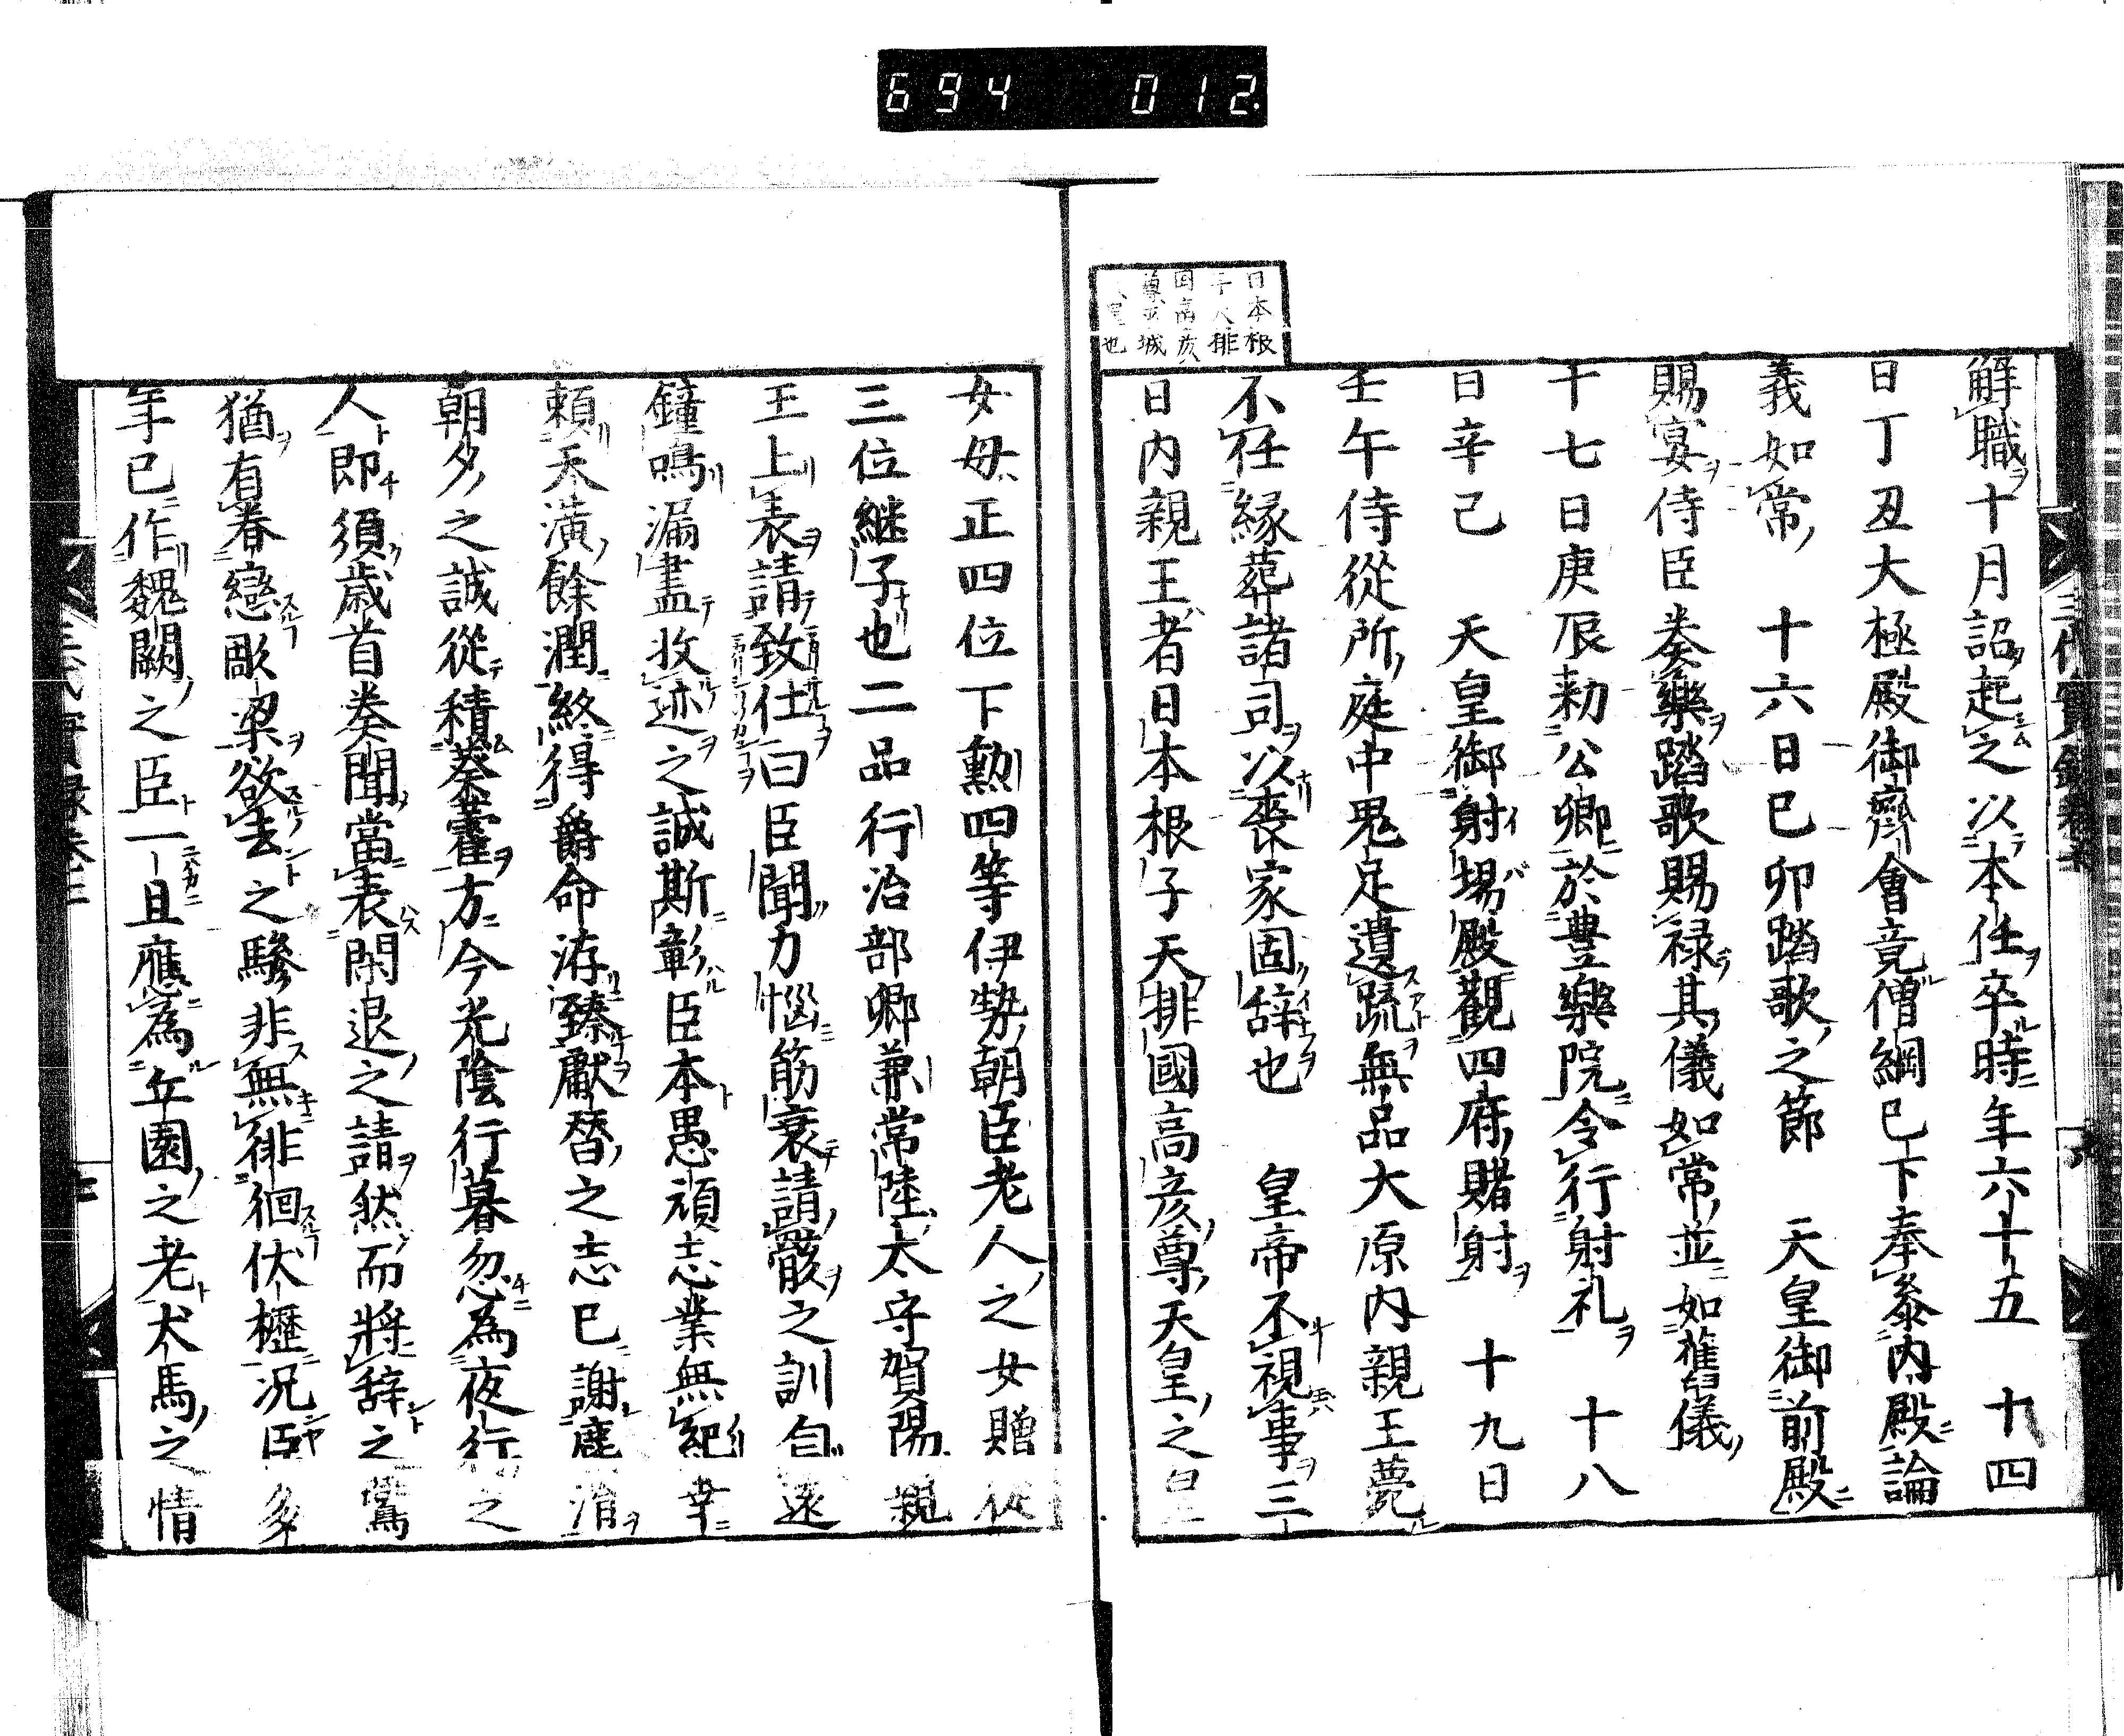 694 012.
日本根
子天排
国高彦
尊平城
天皇也
解職十月詔起之以本任卒時年六十五　十四
日丁丑大極殿御齊會竟僧綱已下奉參內殿論
義如常　十六日己卯踏歌之節　天皇御前殿
賜宴侍臣奏樂踏歌賜禄其儀如常並如舊儀
十七日庚辰勅公卿於豊樂院令行射礼　十八
日辛巳　天皇御射場殿觀四府賭射　十九日
壬午侍從所庭中鬼足遺跡無品大原内親王薨
不任縁葬諸司以喪家固辞也　皇帝不視事三
日内親王者日本根子天排國高彦尊天皇之皇
女母正四位下勲四等伊勢朝臣老人之女贈從
三位継子也二品行治部卿兼常陸太守賀陽親
王上表請致仕曰臣聞力惱筋衰請骸之訓自遠
鐘鳴漏盡收迹之誠斯彰臣本愚頑志業無紀幸
頼天潢餘潤終得爵命洊臻獻替之志已謝塵涓
朝夕之誠從積葵藿方今光陰行暮忽為夜行之
人即須歳首奏聞當表閑退之請然而將辞之鶯
猶有春戀彫梁欲去之驂非無徘徊伏櫪况臣多
年已作魏闕之臣一旦應為丘園之老犬馬之情
三代實録卷三